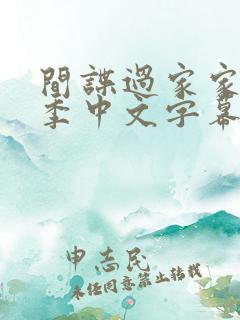 間諜過家家
季中文字幕
申志民
未经同意禁止转载